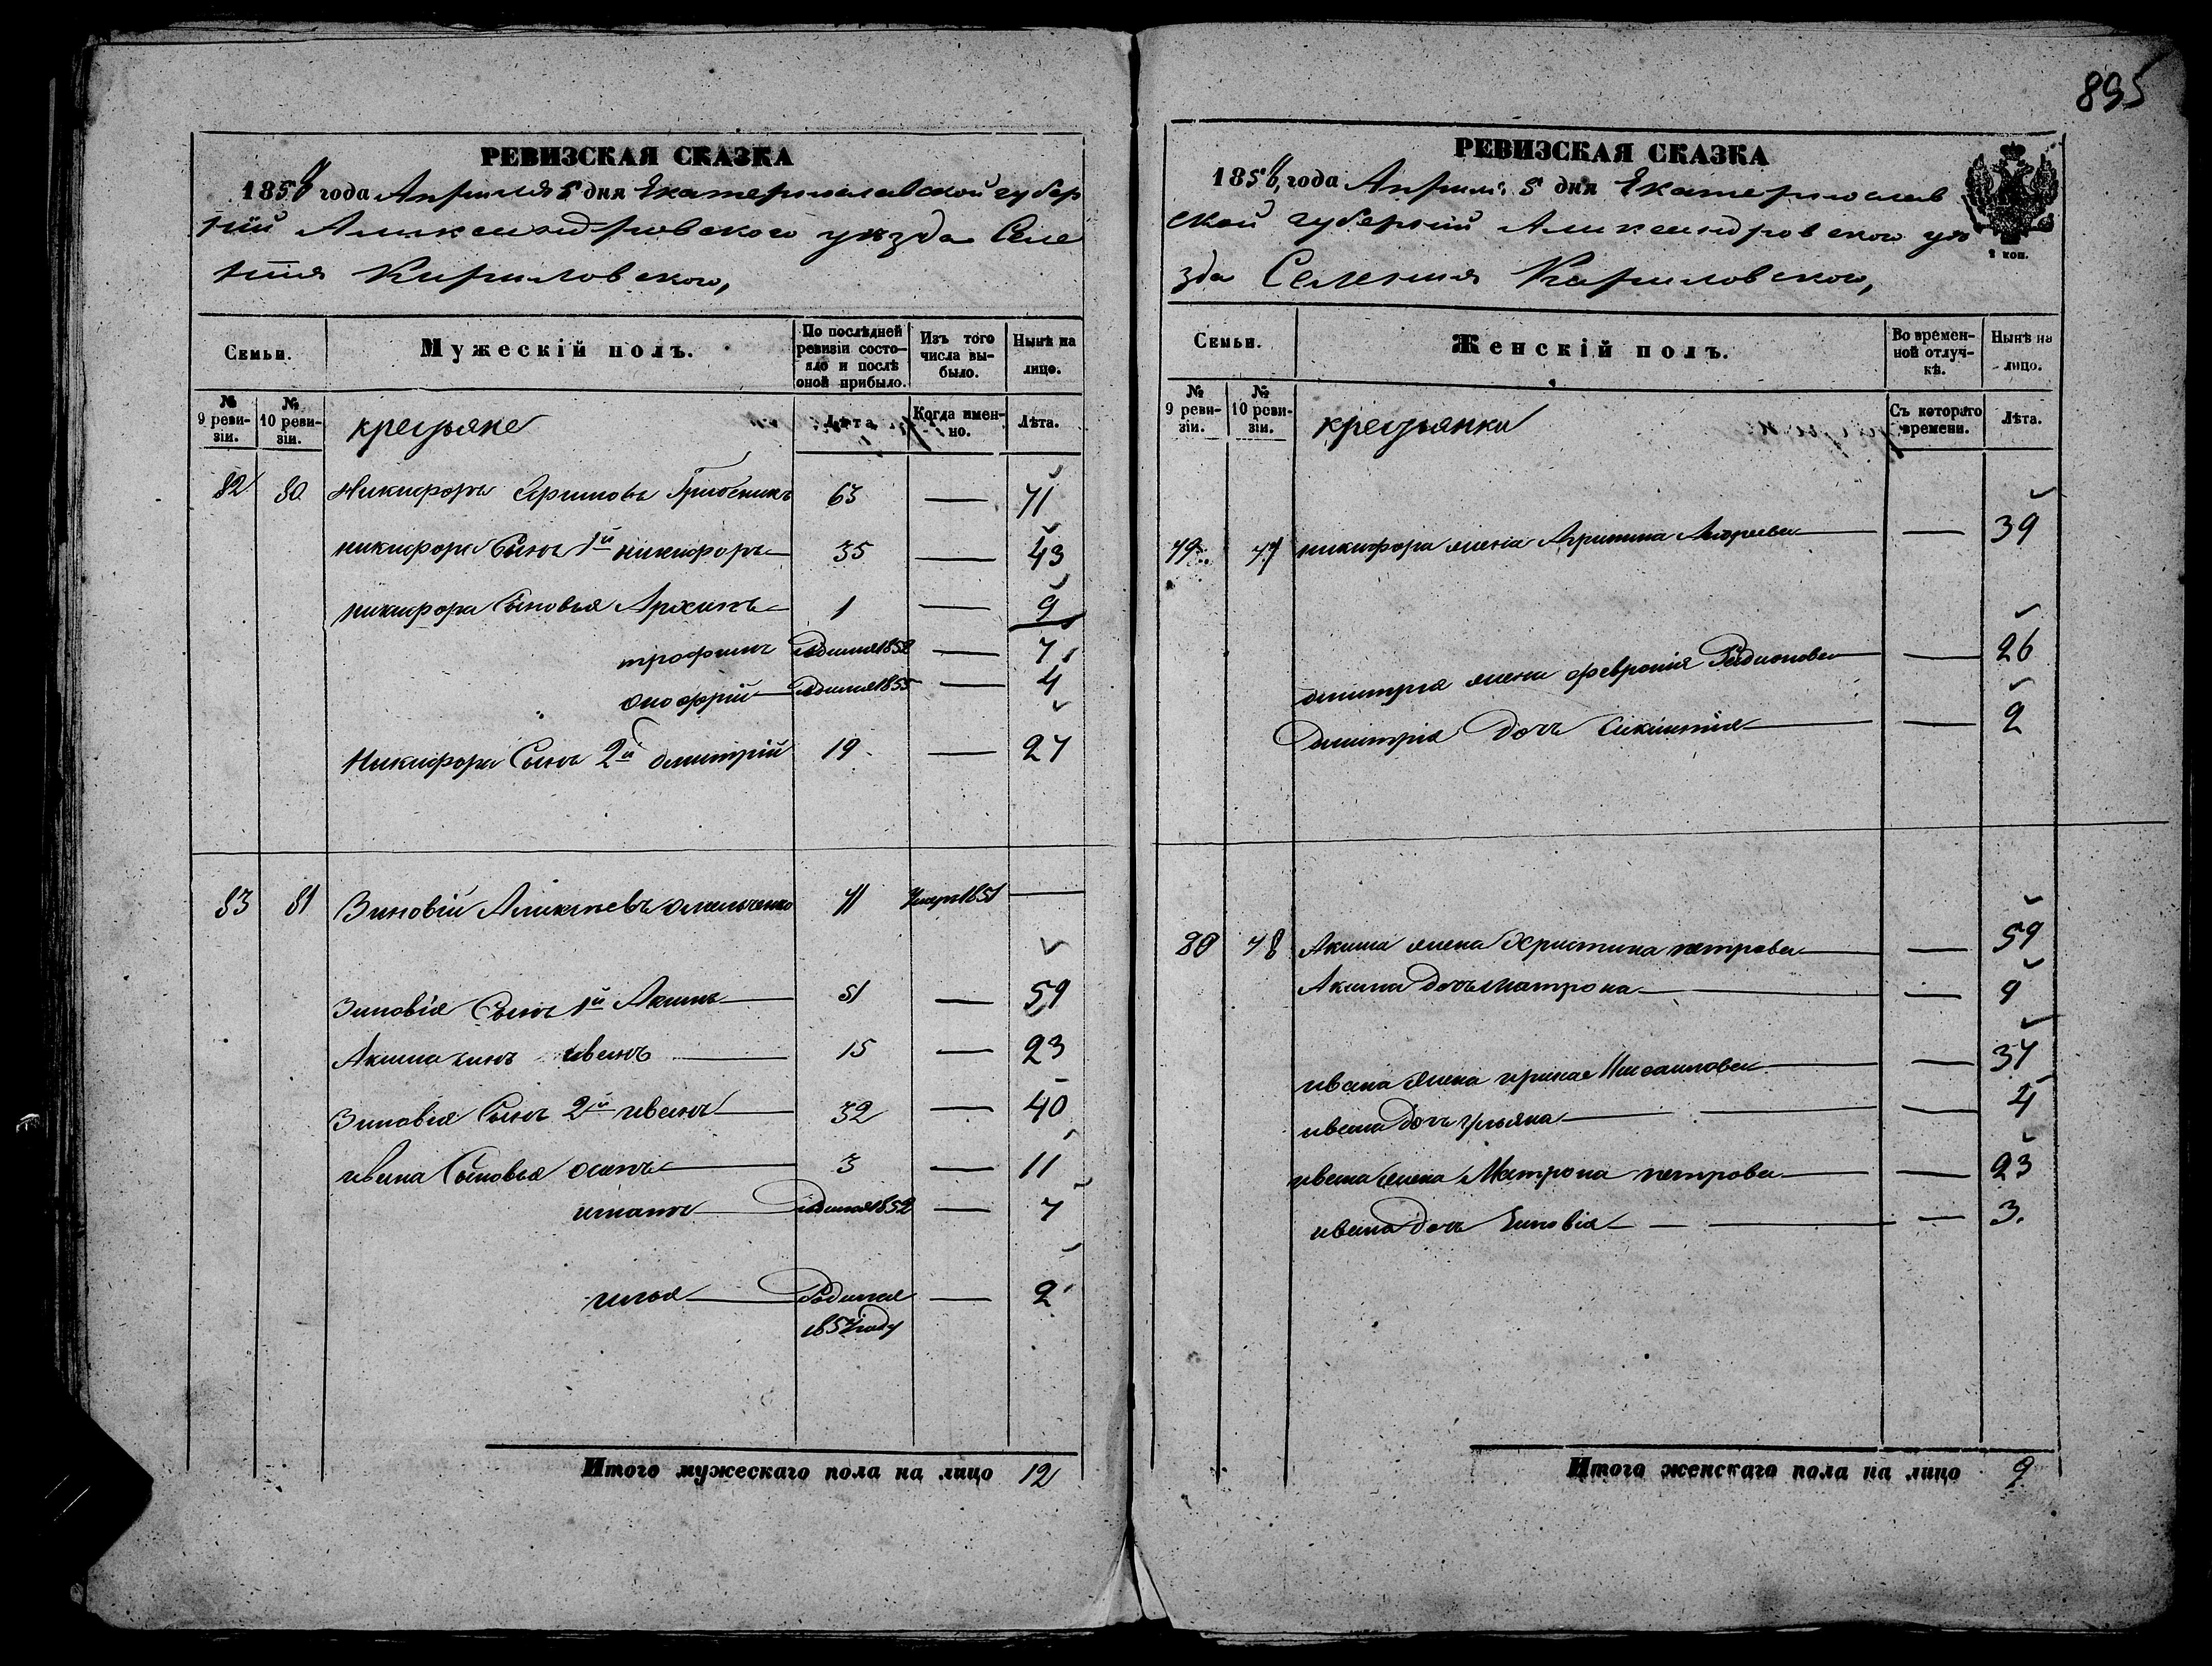 895
РЕВИЗСКАЯ СКАЗКА
1858 года Априля 5 дня Екатеринославской губер
ніи Александровского уѣзда Селе
нія Кириловского,
Семьи.
Мужескій полъ.
По послѣдней ревизіи состояло и послѣ оной прибыло.
Изъ того числа выбыло.
Нынѣ на лицо.
№ 9 ревизіи.
№ 10 ревизіи.
крестьяне
Лѣта.
Когда именно.
Лѣта.
82 80 Никифоръ 63 — 71
никифора Сынъ 1й никифоръ 35 — 43
никифора Сыновья Архипъ 1 — 9
трофимъ Родился 1852 — 7
онофрій Родился 1855 — 4
Никифора Сынъ 2й дмитрій 19 — 27
83 81 Зиновій Омельченко 71 Умеръ 1851 —
Зиновія Сынъ 1й Акимъ 51 — 59
Акима сынъ иванъ 15 — 23
Зиновія Сынъ 2й иванъ 32 — 40
ивана Сыновья осипъ 3 — 11
Родился 1852 — 7
илья Родился — 2
1857 году
Итого мужескаго пола на лицо 12
РЕВИЗСКАЯ СКАЗКА
1858 года Априля 5 дня Екатеринослав
ской губерніи Александровского уѣ
зда Селенія Кириловского,
2 коп.
Семьи.
Женскій полъ.
Во временной отлучкѣ.
Нынѣ на лицо.
№ 9 ревизіи.
№ 10 ревизіи.
крестьянки
Съ котораго времени.
Лѣта.
79 77 никифора жена — 39
дмитрія жена феврония Радионова — 26
Дмитрія дочь — 2
80 78 Акима жена Христина петрова — 59
Акима дочь матрона — 9
ивана жена — 37
ивана дочь ульяна — 4
ивана жена Матрона петрова — 23
ивана дочь — 3.
Итого женскаго пола на лицо 9